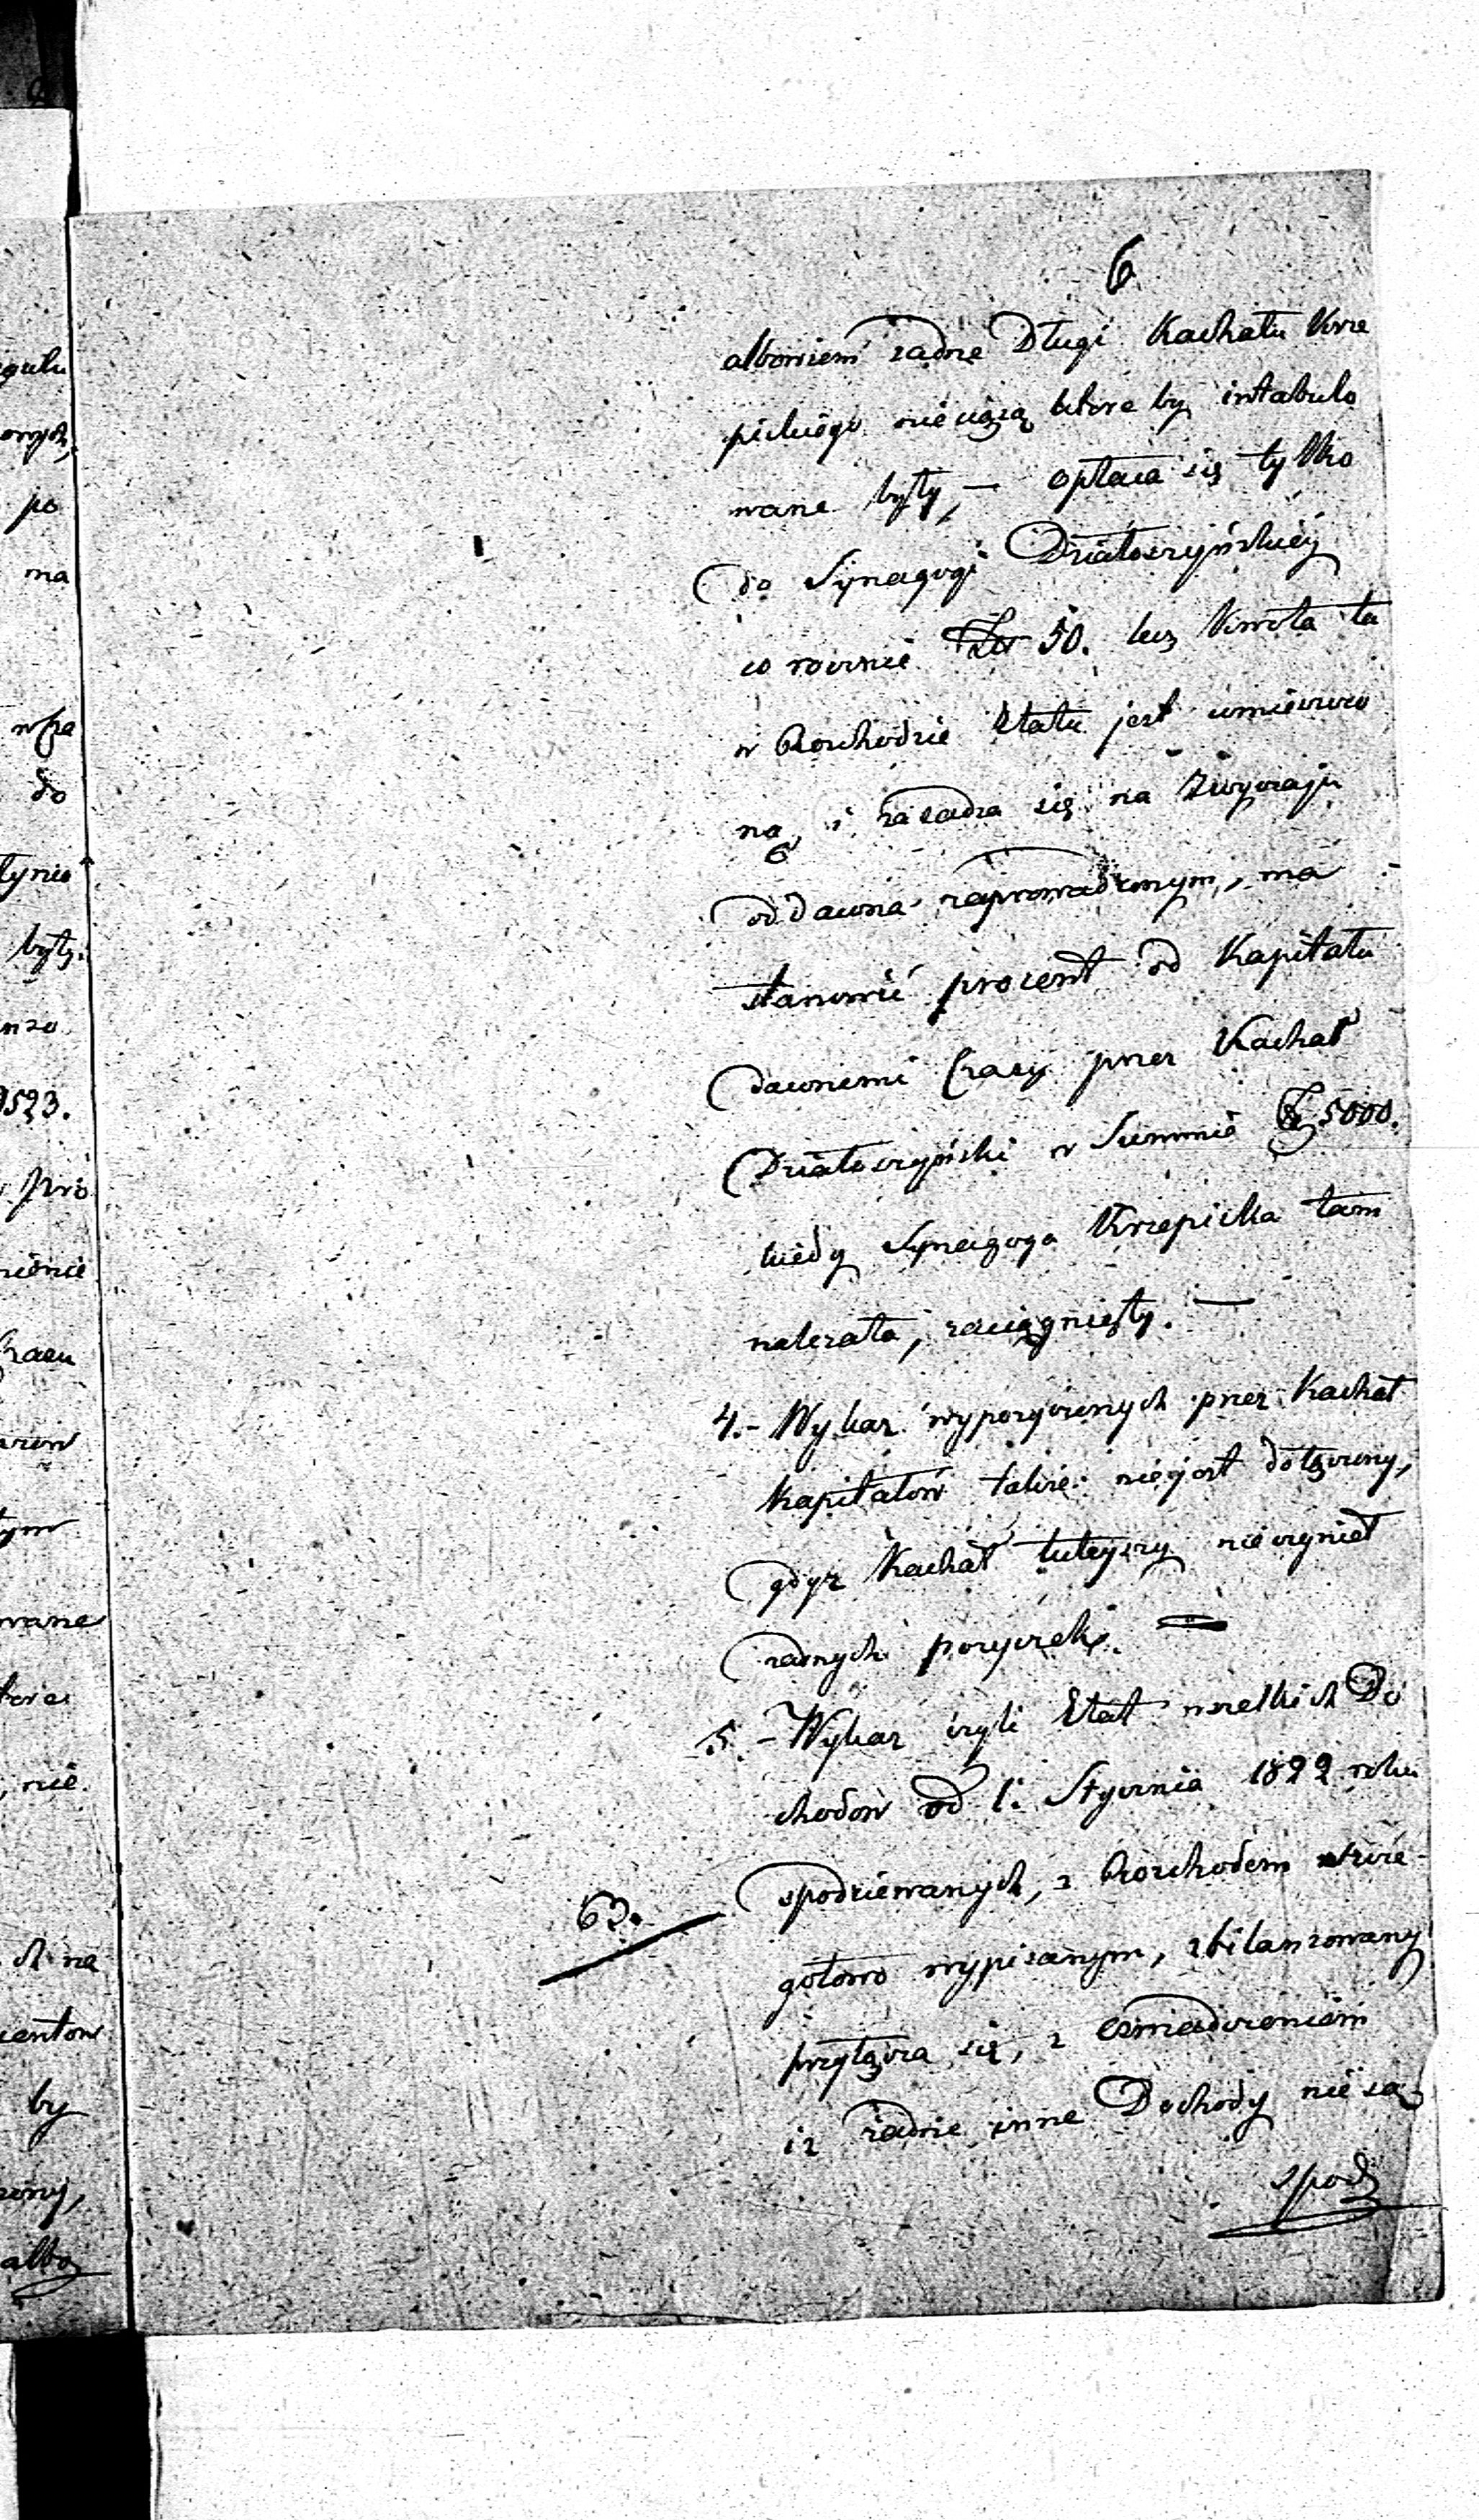 6
albowiem żadne Długi Kachału Krze
pickiego nieciążą które by intabulo
wane były, — opłaca się tylko
do Synagogi Działoszyńskiéy
co rocznie 50. lecz Kwota ta
w Rozchodzie Etatu jest umieszczo
na, i zasadza się na Zwyczaju
od dawna zaprowadzonym, ma
stanowić procent od Kapitału
dawnemi Czasy przez Kachał
Działoszyński w Summie 5000.
kiedy Synagoga Krzepicka tam
należała, zaciągnięty. —
4. – Wykaz wypożyczonych przez Kachał
Kapitałów także niejest dołączony,
gdyż Kachał tuteyszy nieczynił
żadnych pożyczek. —
5. – Wykaz czyli Etat wszelkich Do
chodów od 1. Stycznia 1822 roku
spodziewanych, z Rozchodem szcze-
gółowo wypisanym, zbilanzowany
63.
przyłącza się, z oświadczeniem
iż żadne inne Dochody nie są
spod
egulu
po
ma
do
były.
9523.
pro
wane
nie.
by
albo